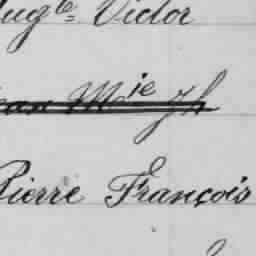 Augte Victor
Jean Mie Jh
Pierre François